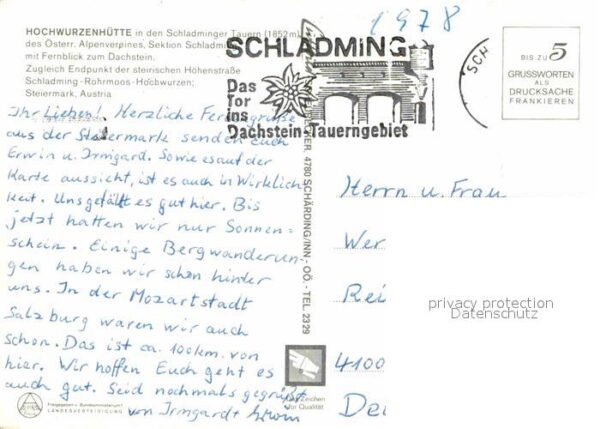 HOCHWURZENHÜTTE in den Schladminger Tauern (1852m)
des Österr. Alpenvereines, Sektion Schladm
mit Fernblick zum Dachstein.
Zugleich Endpunkt der steirischen Höhenstraße
Schladming-Rohrmoos-Hochwurzen;
Steiermark, Austria
1978
SCHLADMING
Das
Tor
ins
Dachstein-Tauerngebiet
SCH
BIS ZU 5
GRUSSWORTEN
ALS
DRUCKSACHE
FRANKIEREN
Ihr Lieben! Herzliche Feriengrüße
aus der Steiermark senden Euch
Erwin u. Irmgard. Sowie es auf der
Karte aussicht, ist es auch in Wirklich-
keit. Uns gefällt es gut hier. Bis
jetzt hatten wir nur Sonnen=
schein. Einige Bergwanderun-
gen haben wir schon hinter
uns. In der Mozartstadt
Salzburg waren wir auch
schon. Das ist ca. 100km. von
hier. Wir hoffen Euch geht es
auch gut. Seid nochmals gegrüßt
von Irmgardt Erwin
4780 SCHÄRDING/INN, OÖ - TEL. 2329
Herrn u. Frau
Wer
Rei
4100
Der
privacy protection
Datenschutz
Zeichen
der Qualität
Freigegeben v. Bundesministerium f.
LANDESVERTEIDIGUNG